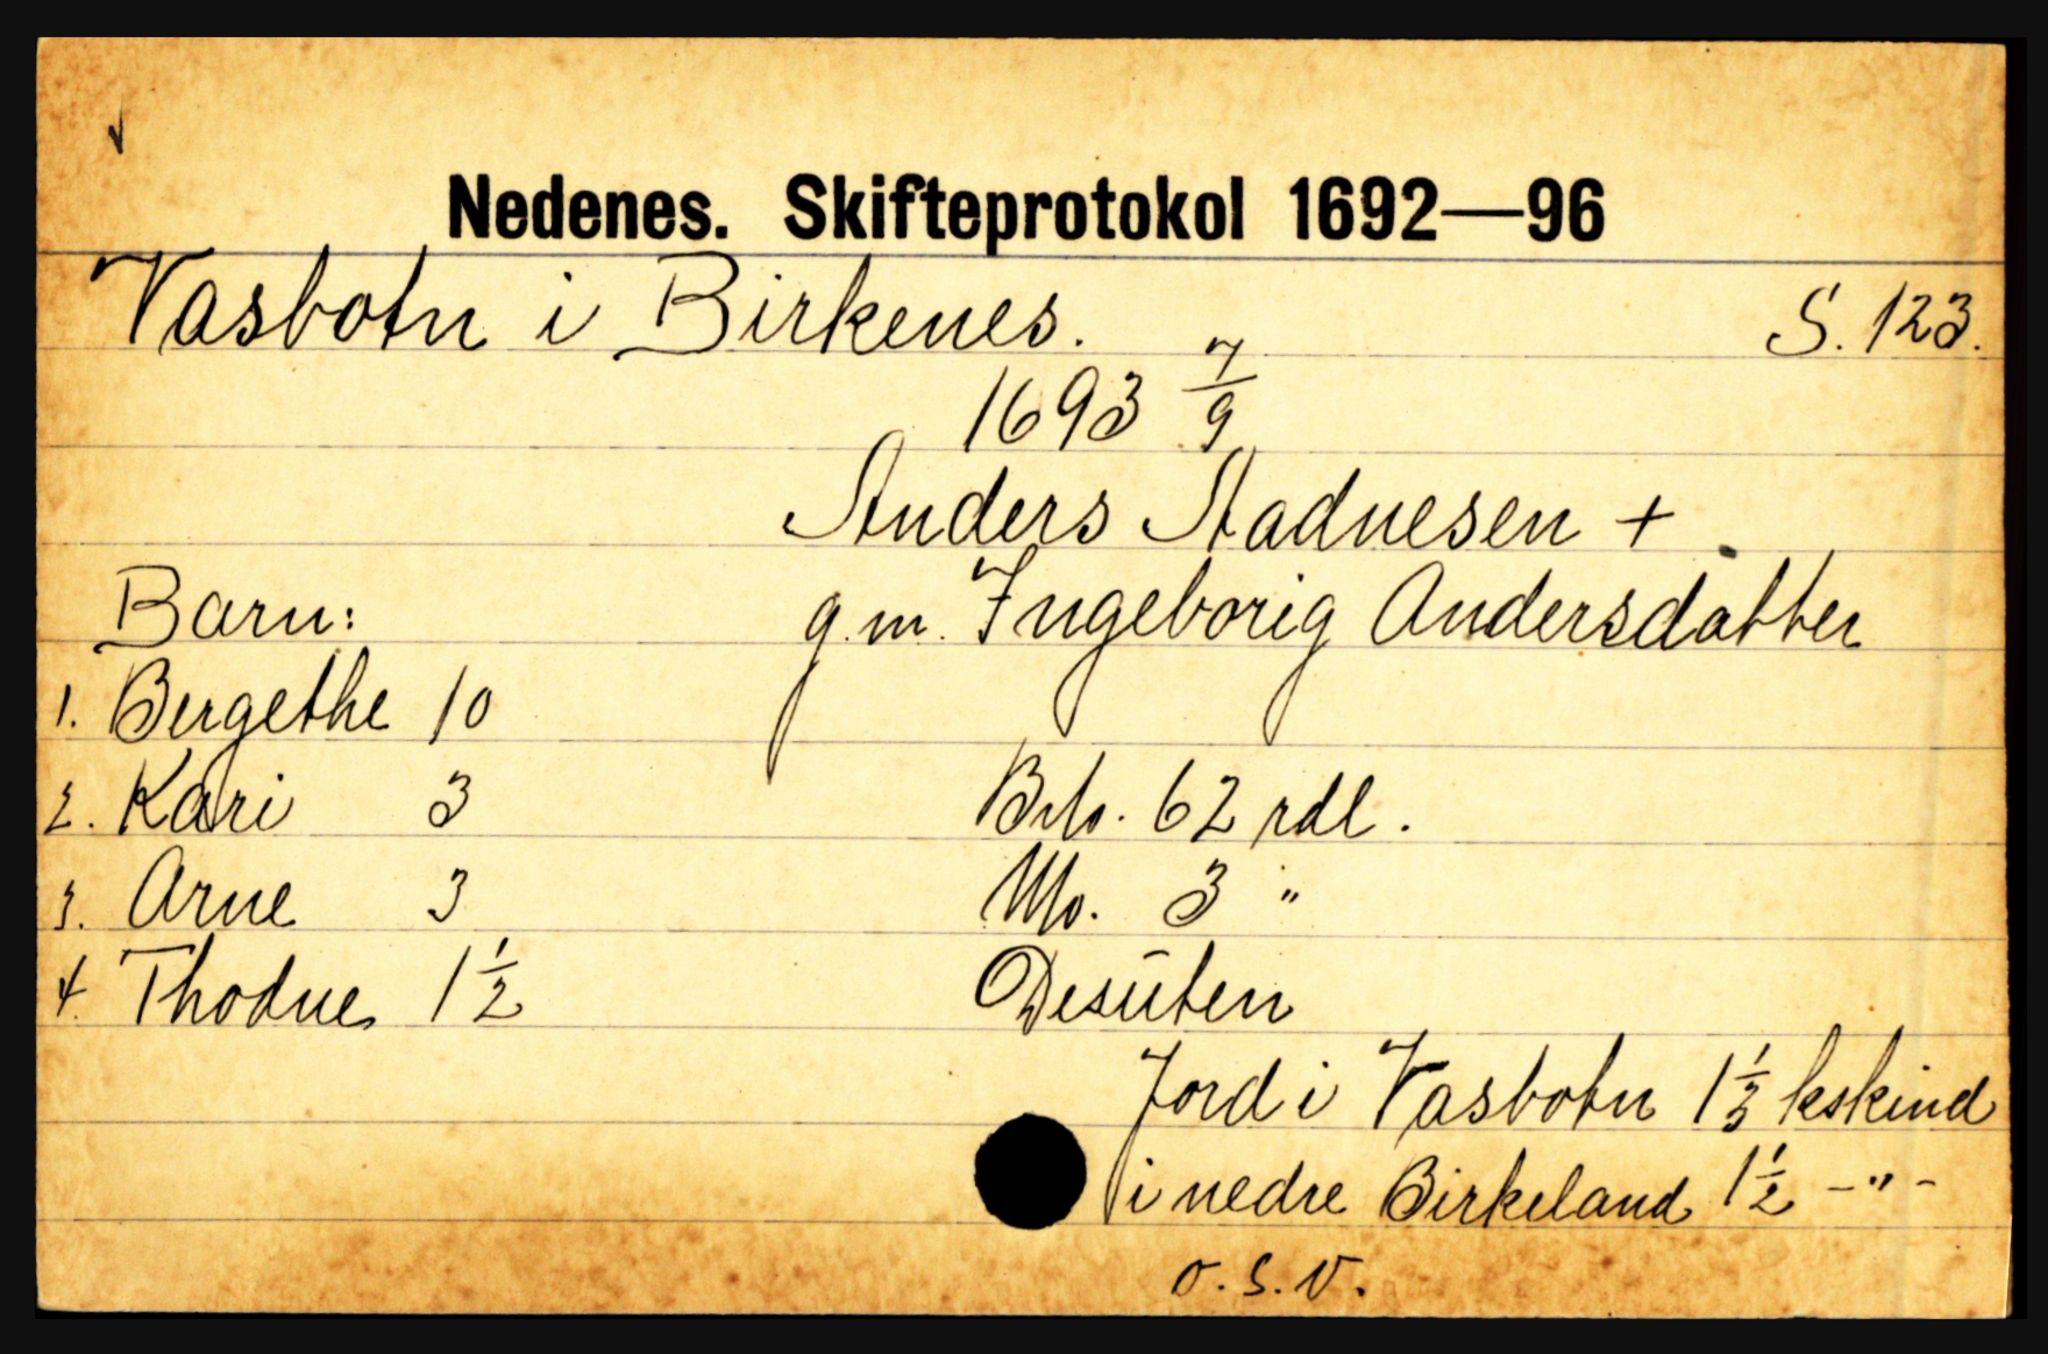 Nedenes. Skifteprotokol 1692—96
Vasbotn i Birkenes. S. 123.
1693 7/9
Anders Aadnesen +
Barn: g.m. Ingeborig Andersdatter
1. Bergethe 10
2. Kari 3 Bto. 62 rdl.
3. Arne 3 Nto. 3 "
4. Thodne 1 1/2 Desüten
Jord i Vasbotn 1 1/3 kskind
i nedre Birkeland 1 1/2 - " -
o.s.v.